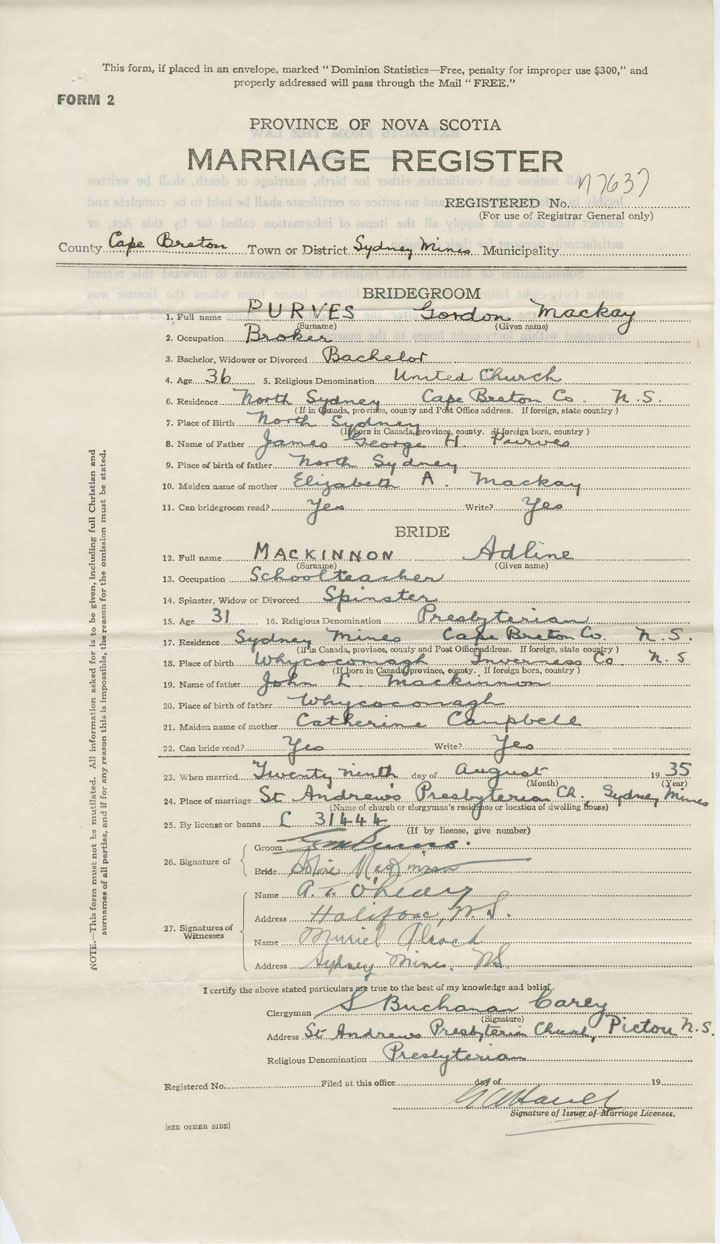 This form, if placed in an envelope, marked "Dominion Statistics—Free, penalty for improper use $300," and
properly addressed will pass through the Mail "FREE."
FORM 2
PROVINCE OF NOVA SCOTIA
MARRIAGE REGISTER
REGISTERED No. 77637
(For use of Registrar General only)
County Cape Breton Town or District Sydney Mines Municipality
BRIDEGROOM
1. Full name PURVES Gordon Mackay
(Surname) (Given name)
2. Occupation Broker
3. Bachelor, Widower or Divorced Bachelor
4. Age 36 5. Religious Denomination United Church
6. Residence North Sydney Cape Breton Co. N.S.
(If in Canada, province, county and Post Office address. If foreign, state country)
7. Place of Birth North Sydney
(If born in Canada, province, county. If foreign born, country)
8. Name of Father James George H. Purves
9. Place of birth of father North Sydney
10. Maiden name of mother Elizabeth A. Mackay
11. Can bridegroom read? Yes Write? Yes
BRIDE
12. Full name MACKINNON Adline
(Surname) (Given name)
13. Occupation Schoolteacher
14. Spinster, Widow or Divorced Spinster
15. Age 31 16. Religious Denomination Presbyterian
17. Residence Sydney Mines Cape Breton Co. N.S.
(If in Canada, province, county and Post Office address. If foreign, state country)
18. Place of birth Whycocomagh Inverness Co N.S
(If born in Canada, province, county. If foreign born, country)
19. Name of father John L Mackinnon
20. Place of birth of father Whycocomagh
21. Maiden name of mother Catherine Campbell
22. Can bride read? Yes Write? Yes
23. When married Twenty ninth day of August 1935
(Month) (Year)
24. Place of marriage St Andrew's Presbyterian Ch. Sydney Mines
(Name of church or clergyman's residence or location of dwelling house)
25. By license or banns L 31444
(If by license, give number)
26. Signature of
Groom
Bride
27. Signatures of Witnesses
Name A. L. O'Leary
Address Halifax, N.S.
Name Muriel
Address Sydney Mines. NS
NOTE.—This form must not be mutilated. All information asked for is to be given, including full Christian and
surnames of all parties, and if for any reason this is impossible, the reason for the omission must be stated.
I certify the above stated particulars are true to the best of my knowledge and belief.
Clergyman S Buchanan Carey
(Signature)
Address St Andrews Presbyterian Church, Pictou N.S.
Religious Denomination Presbyterian
Registered No. Filed at this office day of 19
Signature of Issuer of Marriage Licenses.
[SEE OTHER SIDE]